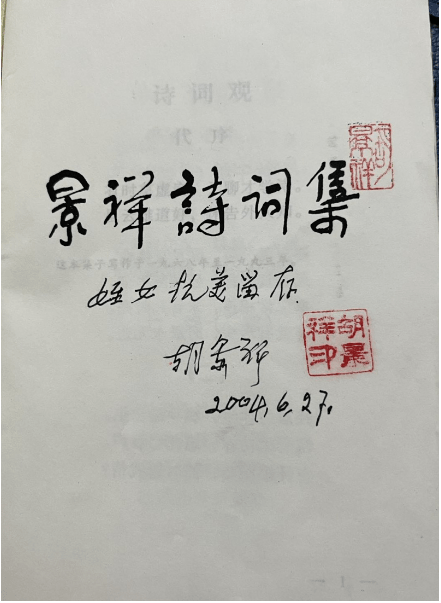 诗词观
代序
景祥詩词集
姪女抗美留存
胡景祥
胡景祥印
2004.6.27.